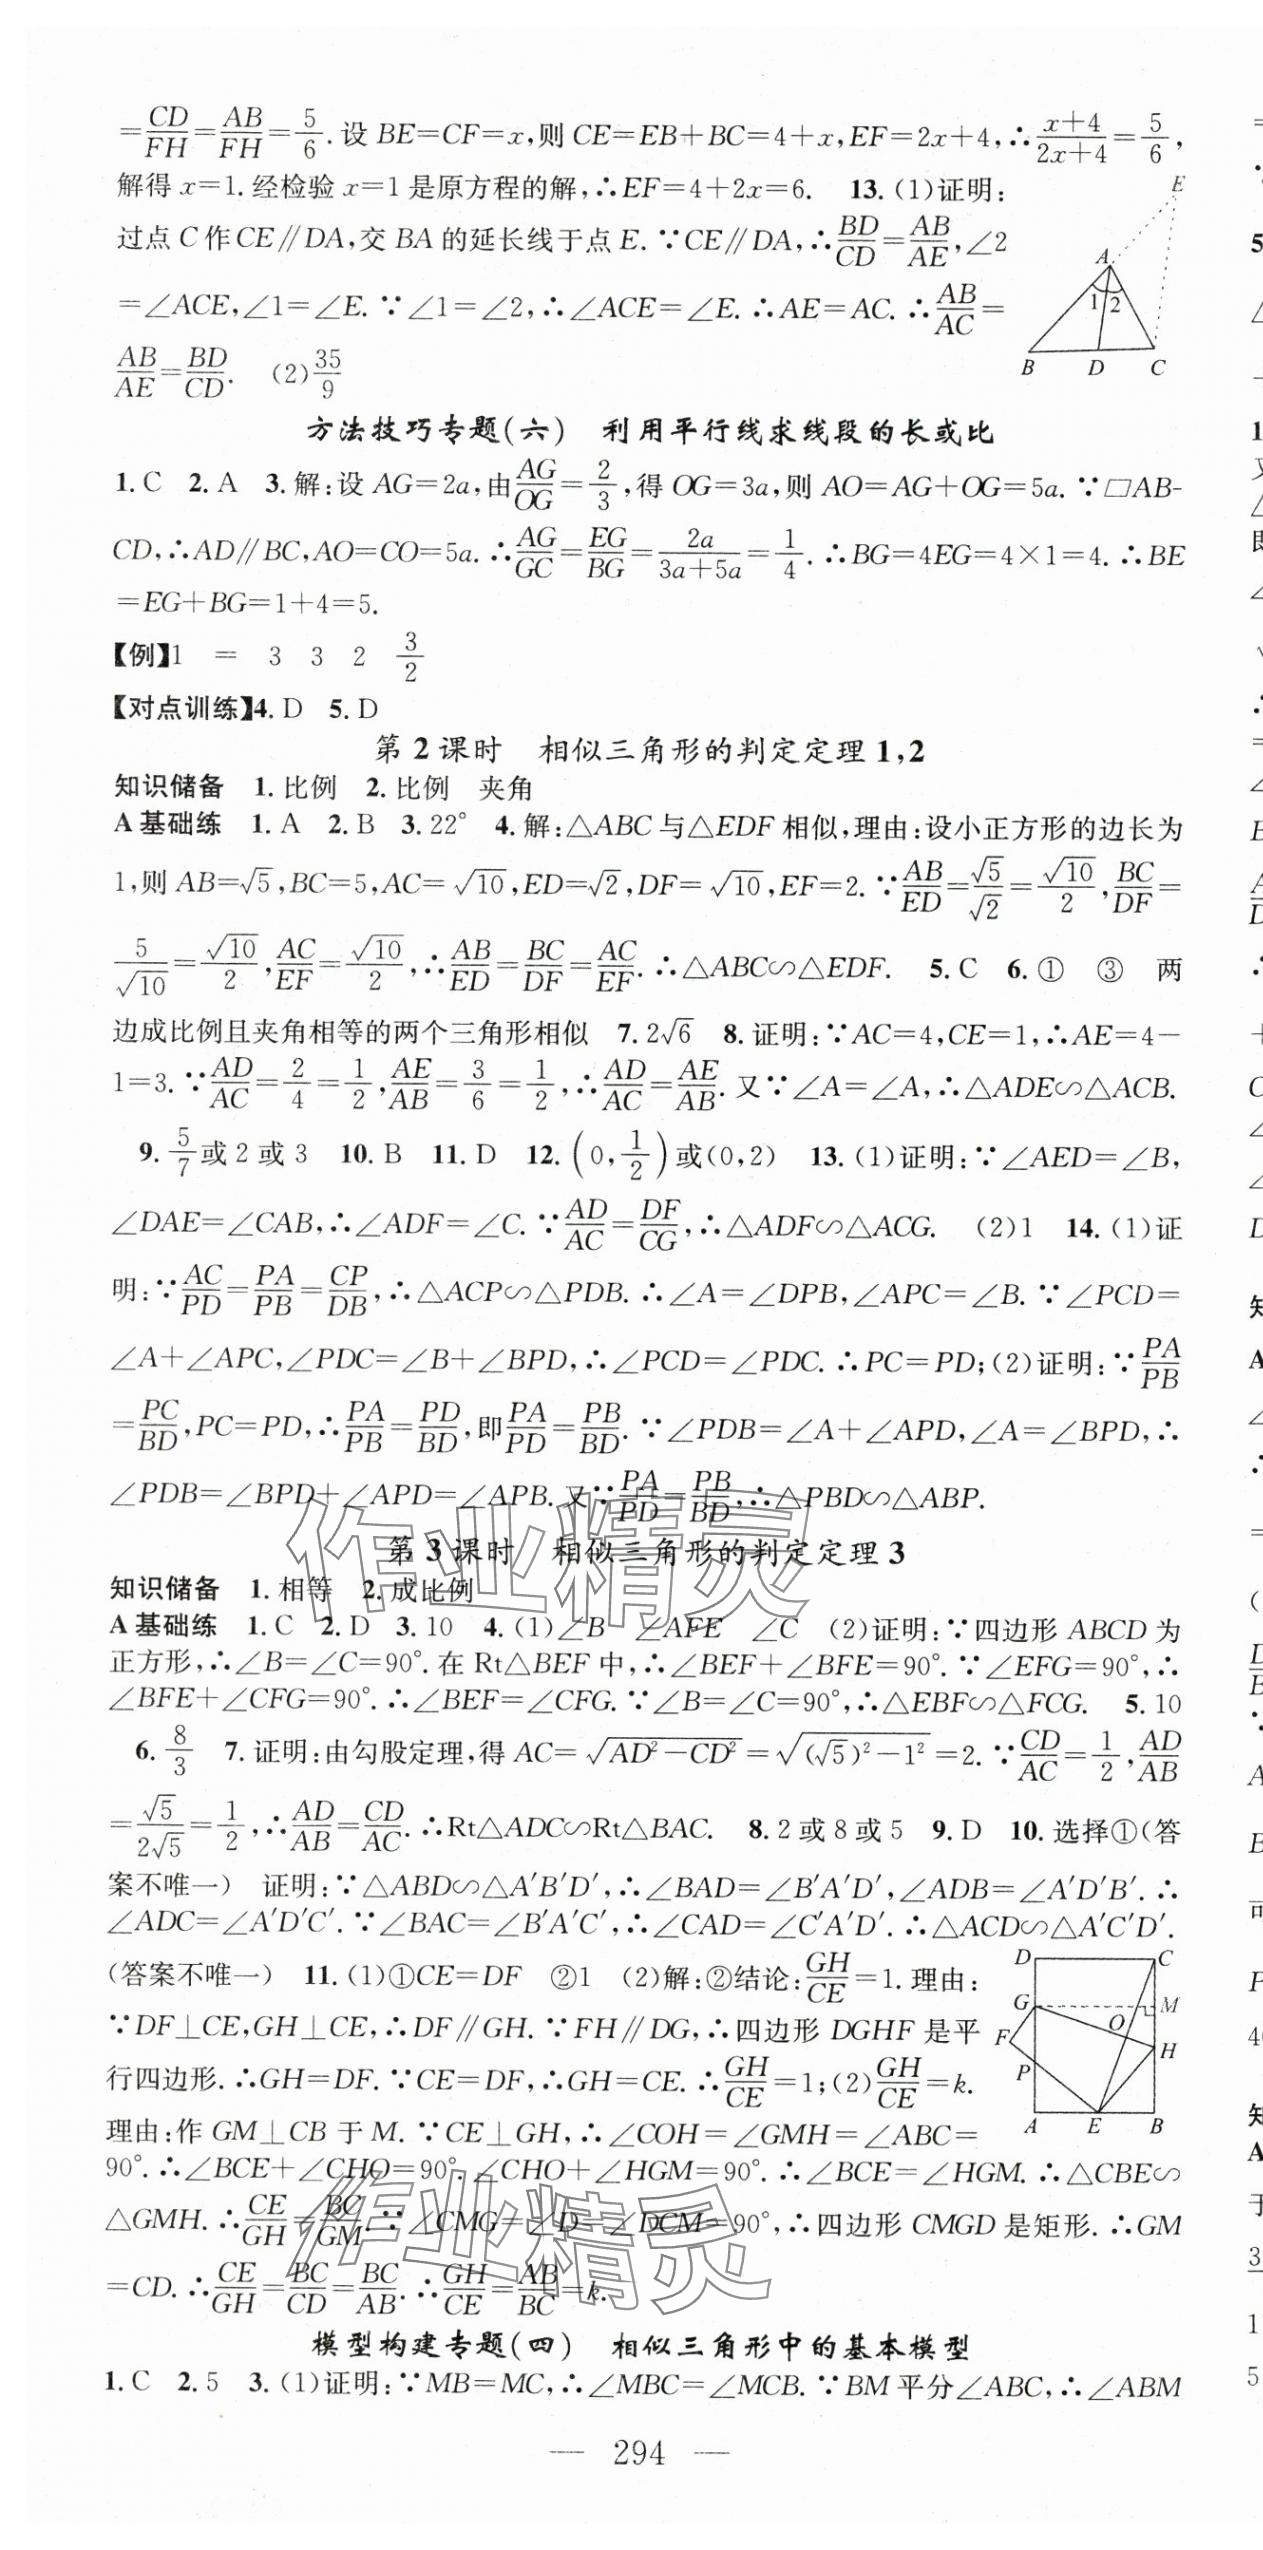 =CD/FH=AB/FH=5/6.设 BE=CF=x,则 CE=EB+BC=4+x,EF=2x+4,∴(x+4)/(2x+4)=5/6,
解得 x=1.经检验 x=1 是原方程的解,∴EF=4+2x=6. 13.(1)证明:
过点 C 作 CE∥DA,交 BA 的延长线于点 E.∵CE∥DA,∴BD/CD=AB/AE,∠2
=∠ACE,∠1=∠E.∵∠1=∠2,∴∠ACE=∠E.∴AE=AC.∴AB/AC=
AB/AE=BD/CD. (2)35/9
E
A
1 2
B D C
方法技巧专题(六) 利用平行线求线段的长或比
1.C 2.A 3.解:设 AG=2a,由AG/OG=2/3,得 OG=3a,则 AO=AG+OG=5a.∵▱AB-
CD,∴AD∥BC,AO=CO=5a.∴AG/GC=EG/BG=2a/(3a+5a)=1/4.∴BG=4EG=4×1=4.∴BE
=EG+BG=1+4=5.
【例】1 = 3 3 2 3/2
【对点训练】4.D 5.D
第 2 课时 相似三角形的判定定理 1,2
知识储备 1.比例 2.比例 夹角
A 基础练 1.A 2.B 3.22° 4.解:△ABC 与△EDF 相似,理由:设小正方形的边长为
1,则 AB=√5,BC=5,AC=√10,ED=√2,DF=√10,EF=2.∵AB/ED=√5/√2=√10/2,BC/DF=
5/√10=√10/2,AC/EF=√10/2,∴AB/ED=BC/DF=AC/EF.∴△ABC∽△EDF. 5.C 6.① ③ 两
边成比例且夹角相等的两个三角形相似 7.2√6 8.证明:∵AC=4,CE=1,∴AE=4-
1=3.∵AD/AC=2/4=1/2,AE/AB=3/6=1/2,∴AD/AC=AE/AB.又∵∠A=∠A,∴△ADE∽△ACB.
9.5/7或 2 或 3 10.B 11.D 12.(0,1/2)或(0,2) 13.(1)证明:∵∠AED=∠B,
∠DAE=∠CAB,∴∠ADF=∠C.∵AD/AC=DF/CG,∴△ADF∽△ACG. (2)1 14.(1)证
明:∵AC/PD=PA/PB=CP/DB,∴△ACP∽△PDB.∴∠A=∠DPB,∠APC=∠B.∵∠PCD=
∠A+∠APC,∠PDC=∠B+∠BPD,∴∠PCD=∠PDC.∴PC=PD;(2)证明:∵PA/PB
=PC/BD,PC=PD,∴PA/PB=PD/BD,即PA/PD=PB/BD.∵∠PDB=∠A+∠APD,∠A=∠BPD,∴
∠PDB=∠BPD+∠APD=∠APB.又∵PA/PD=PB/BD,∴△PBD∽△ABP.
作业精灵
第 3 课时 相似三角形的判定定理 3
知识储备 1.相等 2.成比例
A 基础练 1.C 2.D 3.10 4.(1)∠B ∠AFE ∠C (2)证明:∵四边形 ABCD 为
正方形,∴∠B=∠C=90°.在 Rt△BEF 中,∴∠BEF+∠BFE=90°.∵∠EFG=90°,∴
∠BFE+∠CFG=90°.∴∠BEF=∠CFG.∵∠B=∠C=90°,∴△EBF∽△FCG. 5.10
6.8/3 7.证明:由勾股定理,得 AC=√(AD²-CD²)=√((√5)²-1²)=2.∵CD/AC=1/2,AD/AB
=√5/2√5=1/2,∴AD/AB=CD/AC.∴Rt△ADC∽Rt△BAC. 8.2 或 8 或 5 9.D 10.选择①(答
案不唯一) 证明:∵△ABD∽△A′B′D′,∴∠BAD=∠B′A′D′,∠ADB=∠A′D′B′.∴
∠ADC=∠A′D′C′.∵∠BAC=∠B′A′C′,∴∠CAD=∠C′A′D′.∴△ACD∽△A′C′D′.
(答案不唯一) 11.(1)①CE=DF ②1 (2)解:②结论:GH/CE=1.理由:
∵DF⊥CE,GH⊥CE,∴DF∥GH.∵FH∥DG,∴四边形 DGHF 是平
行四边形.∴GH=DF.∵CE=DF,∴GH=CE.∴GH/CE=1;(2)GH/CE=k.
理由:作 GM⊥CB 于 M.∵CE⊥GH,∴∠COH=∠GMH=∠ABC=
90°.∴∠BCE+∠CHO=90°.∠CHO+∠HGM=90°.∴∠BCE=∠HGM.∴△CBE∽
△GMH.∴CE/GH=BC/GM.∵∠CMG=∠D=∠DCM=90°,∴四边形 CMGD 是矩形.∴GM
=CD.∴CE/GH=BC/CD=BC/AB.∴GH/CE=AB/BC=k.
D C
G M
O
F H
P
A E B
作业精灵
模型构建专题(四) 相似三角形中的基本模型
1.C 2.5 3.(1)证明:∵MB=MC,∴∠MBC=∠MCB.∵BM 平分∠ABC,∴∠ABM
— 294 —